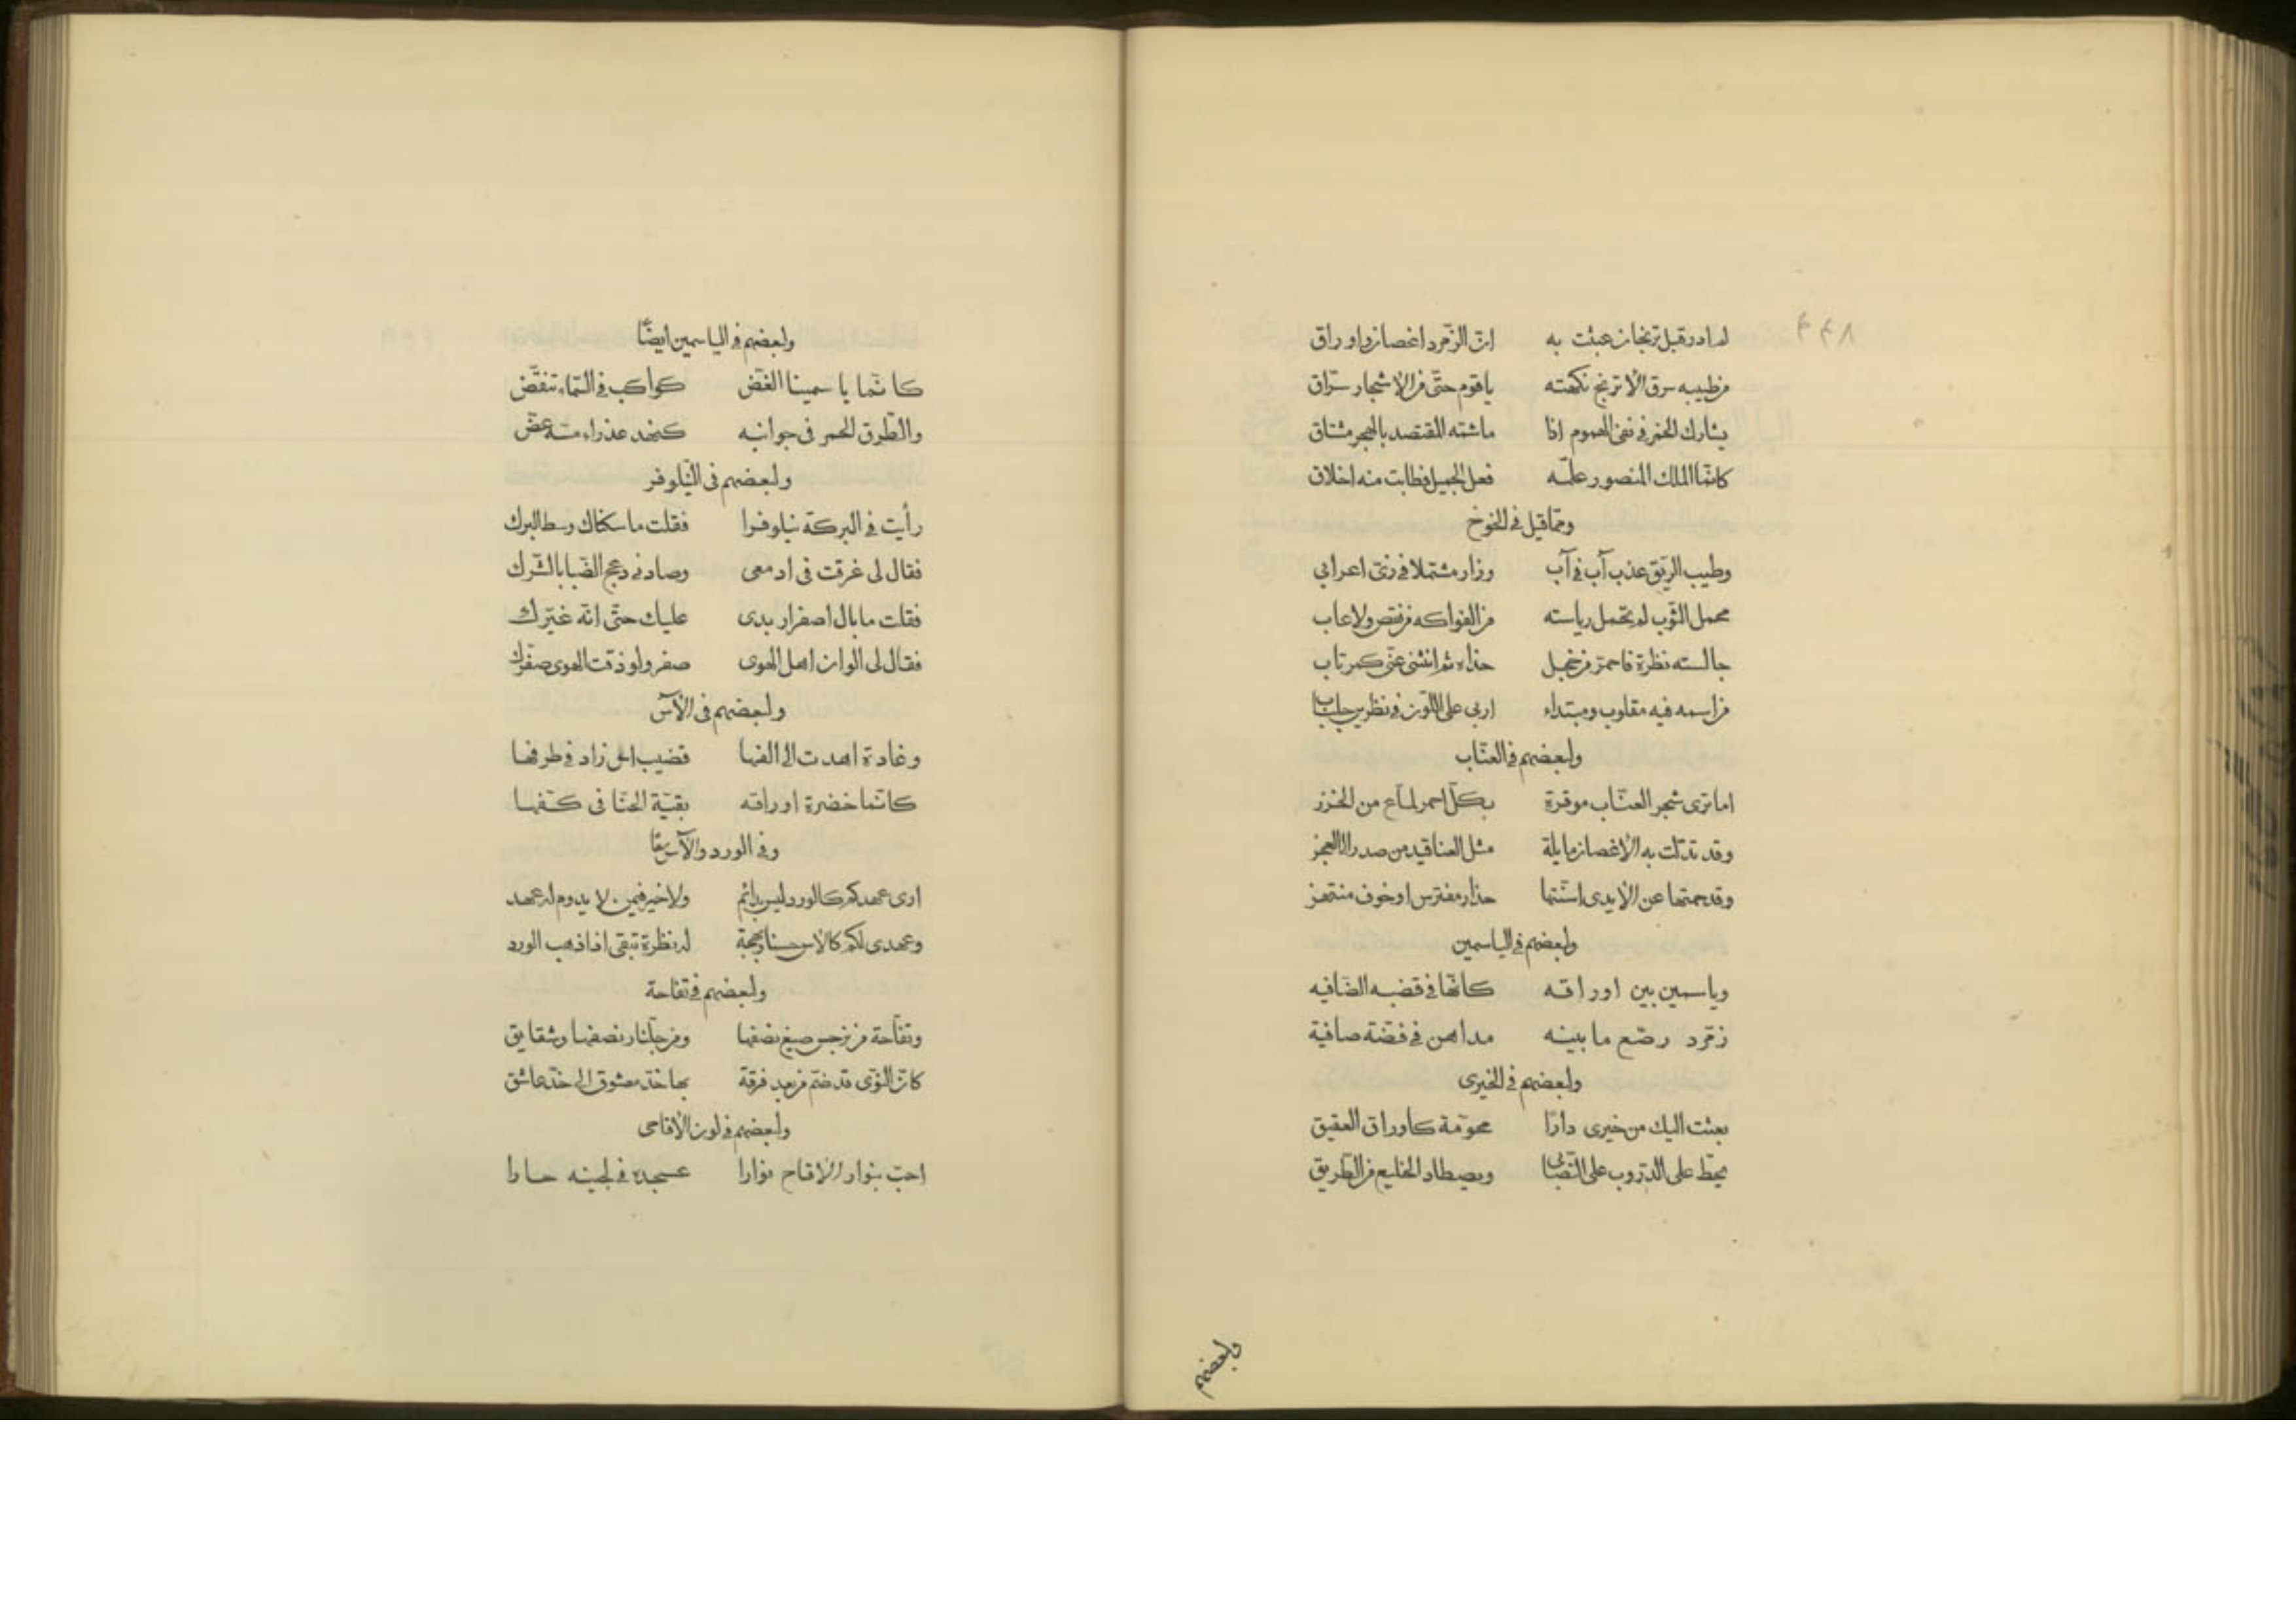 لم ادر قبل ترنجان عبثت به ان الزمرد اغصان واوراق
من طيبه سرق الاترنج نكهته يا قوم حتى من الاشجار سراق
يشارك الخمر فى نفى الهموم اذا ماشته المقتصد بالهجر مشتاق
كانما الملك المنصور علمه فعل الجميل فطابت منه اخلاق
ومما قيل فى الخوخ
وطيب الريق عذب آب فى آب وزار مشتملا فى زى اعرابى
مخمل الثوب لم تخمل رياسته من الفواكه من نقص ولا عاب
جالسته نظرة فاحمر من خجل حذاه ثم انثنى عنى كمرتاب
من اسمه فيه مقلوب ومبتداء اربى على اللوز فى نظر
ولبعضهم فى العناب
اما ترى شجر العناب موقرة بكل احمر لماع من الخرز
وقد تدلت به الاغصان مايلة مثل العناقيد من صدر الى العجز
وقد حمتها عن الايدى اسنتها حذار مفترس او خوف منتهز
ولبعضهم فى الياسمين
وياسمين بين اوراقه كانها فى قضبه الضافيه
زمرد رضع ما بينه مداهن فى فضة صافية
ولبعضهم فى الخيرى
بعثت اليك من خيرى دارا محومة كاوراق العقيق
يحط على الدروب على التصابى ويصطاد الخليع من الطريق
ولبعضهم
ولبعضهم فى الياسمين ايضًا
كانما ياسمينا الغض كواكب فى السماء تنقض
والطرق الحمر فى جوانبه كخد عذراء مسه عض
ولبعضهم فى النيلوفر
رأيت فى البركة نيلوفرا فقلت ما سكناك وسط البرك
فقال لى غرقت فى ادمعى وصادنى دعج الضبا بالشرك
فقلت ما بال اصفرار بدى عليك حتى انه غيرك
فقال لى الوان اهل الهوى صفر ولو ذقت الهوى صفرك
ولبعضهم فى الآس
وغادة اهدت الى الفها قضيب اس زاد فى ظرفها
كانما خضرة اوراقه بقية الحنا فى كفها
وفى الورد والآس معًا
ارى عهدكم كالورد ليس بدائم ولا خير فيمن لا يدوم له عهد
وعهدى لكم كالاس حسنا وبهجة له نظرة تبقى اذا ذهب الورد
ولبعضهم فى تفاحة
وتفاحة من نرجس صيغ نصفها ومن جلنار نصفها وشقايق
كان النوى قد ضم من بعد فرقة بها خد معشوق الى خد عاشق
ولبعضهم فى لون الاقاحى
احب بنوار الاقاح نوارا عسجده فى لجينه حارا